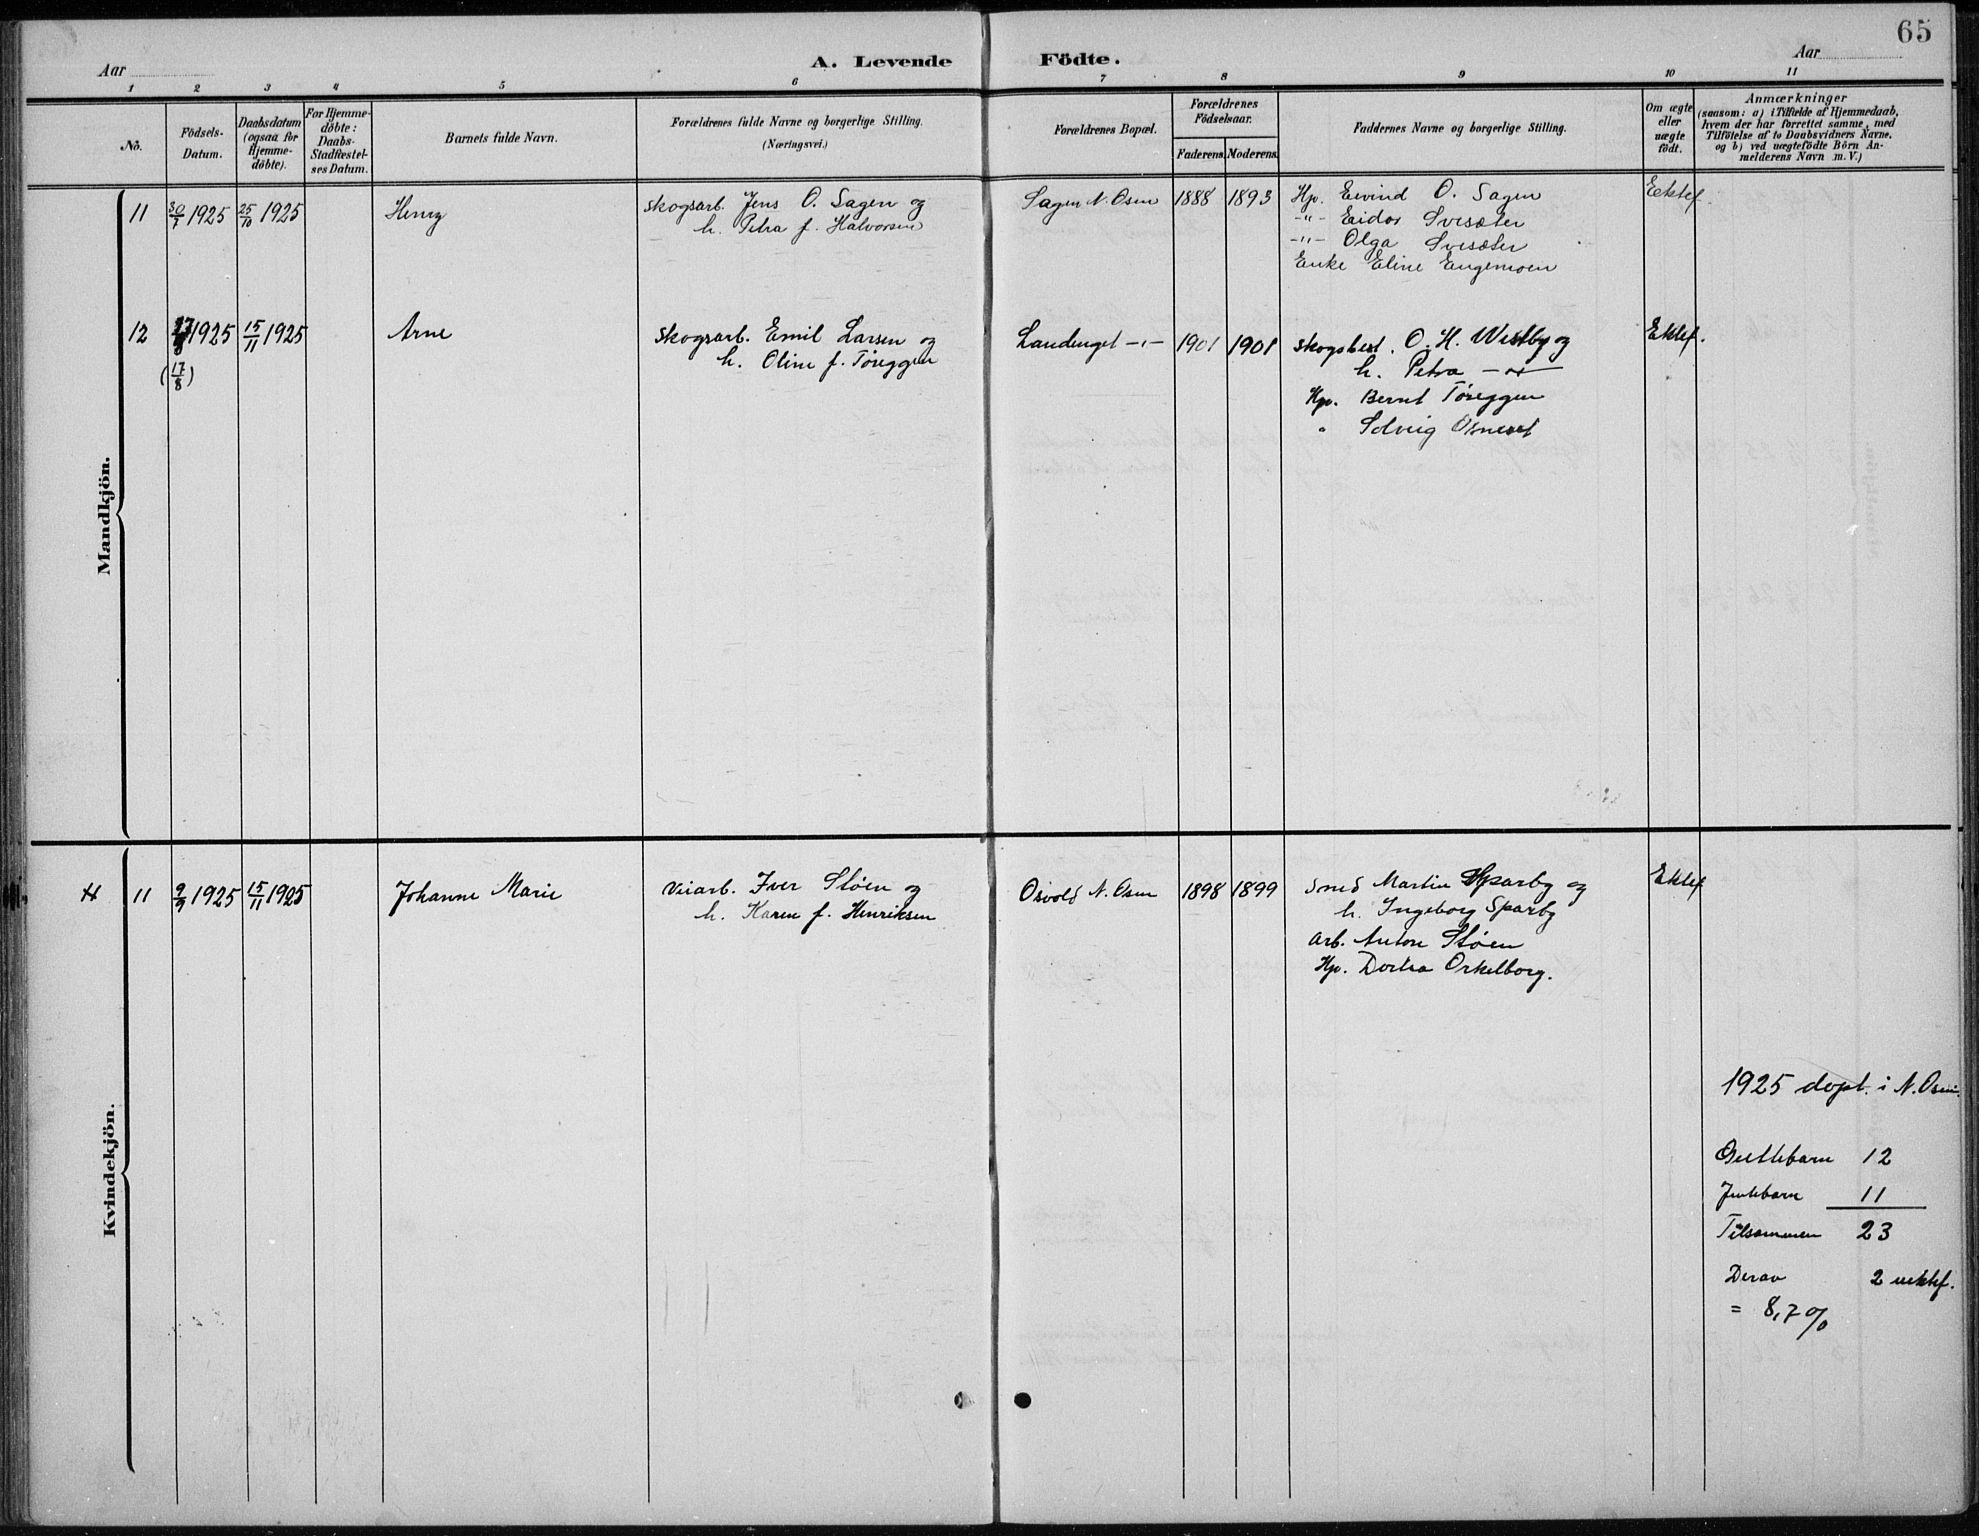 65
Aar
A. Levende Födte.
Aar
1 2 3 4 5 6 7 8 9 10 11
No.
Födsels-
Datum.
Daabsdatum
(ogsaa for
Hjemme-
döbte).
For Hjemme-
döbte:
Daabs-
Stadfæstel-
ses Datum.
Barnets fulde Navn.
Forældrenes fulde Navne og borgerlige Stilling.
(Næringsvei.)
Forældrenes Bopæl.
Forældrenes
Födselsaar.
Faderens. Moderens.
Faddernes Navne og borgerlige Stilling.
Om ægte
eller
uægte
födt.
Anmærkninger
(saasom: a) i Tilfælde af Hjemmedaab,
hvem der har forrettet samme, med
Tilföielse af to Daabsvidners Navne,
og b) ved uægtefödte Börn An-
melderens Navn m. V.)
Mandkjön.
11 30/7 1925 25/10 1925 Henry skogsarb. Jens O. Sagen og Sagen N. Osen 1888 1893 Hp. Eivind O. Sagen Eektef.
h. Petra f. Halvorsen -"- Eidor Svesæter
-"- Olga Svesæter
Enke Eline Engemoen
12 17/8 1925 15/11 1925 Arne skogsarb. Emil Larsen og Landenget -"- 1901 1901 skogsbest. O. H. Westby og Ektef.
(17/8) h. Oline f. Tøreggen h. Petra -"-
Hp. Bernt Tøreggen
" Solveig Osneset
Kvindekjön.
11 9/9 1925 15/11 1925 Johanne Marie veiarb. Iver Støen og Osvold N. Osen 1898 1899 smed Martin Sparby og Ektef.
h. Karen f. Henriksen h. Ingeborg Sparby
arb. Anton Støen
Hp. Dortea Orkelborg.
1925 døpt i N. Osen.
Guttebarn 12
Jentebarn 11
Tilsammen 23
Derav 2 uektef.
= 8,7 %